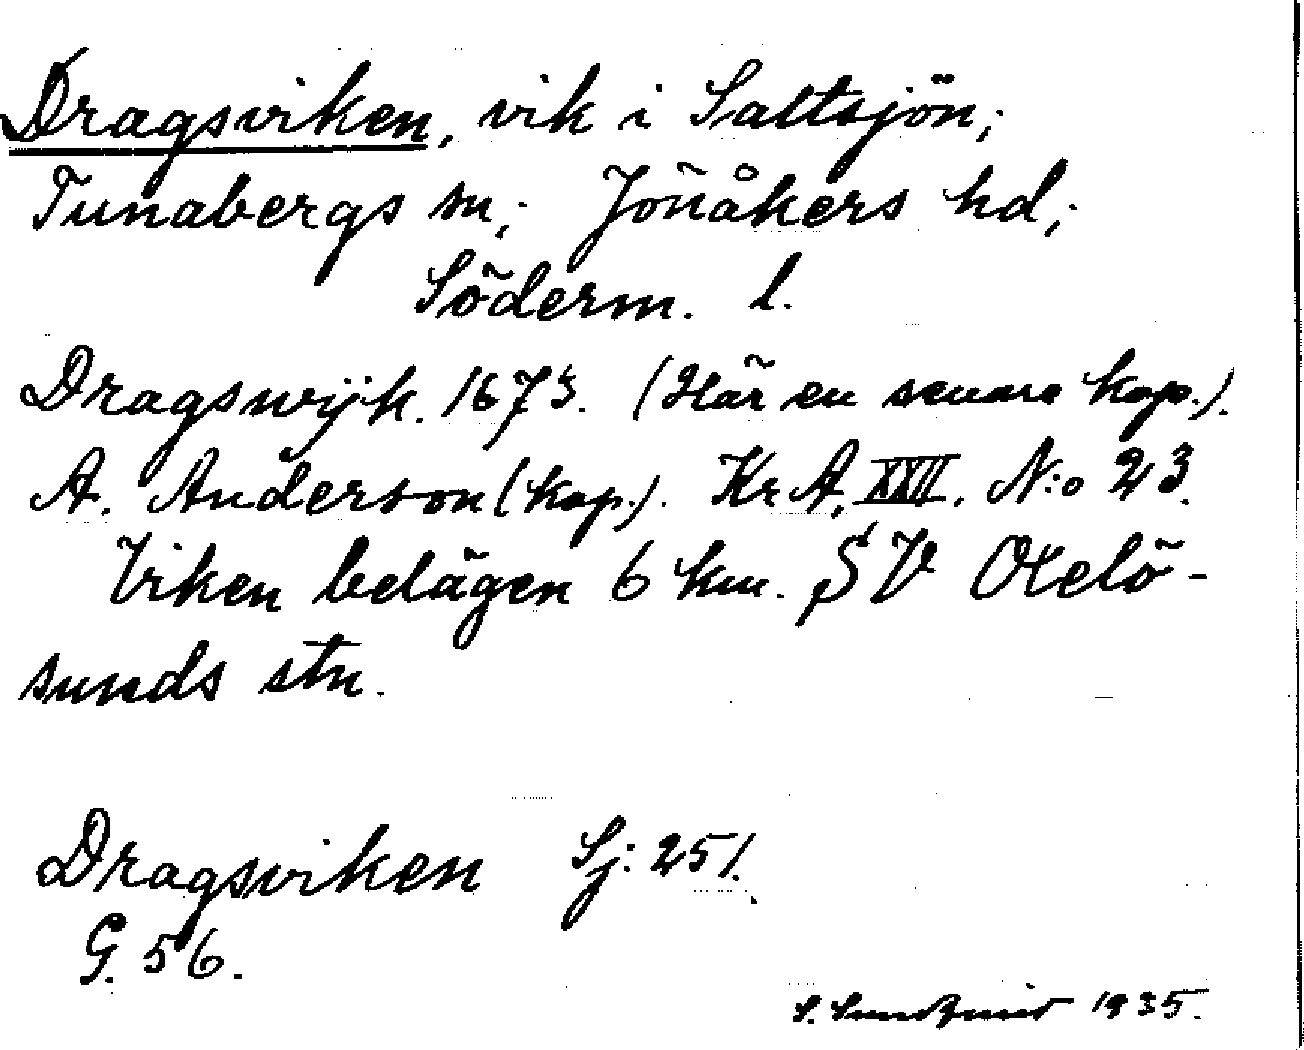 Dragsviken, vik i Saltsjön;
Tunabergs sn; Jönåkers hd;
Söderm. l.
Dragswijk. 1673. (Här en senare kop.).
A. Anderson (kop.). Kr. A. XXII. N:o 23.
Viken belägen 6 km. SV Oxelö-
sunds stn.
Dragsviken Sj: 251.
G. 56.
S. Sundqvist 1935.